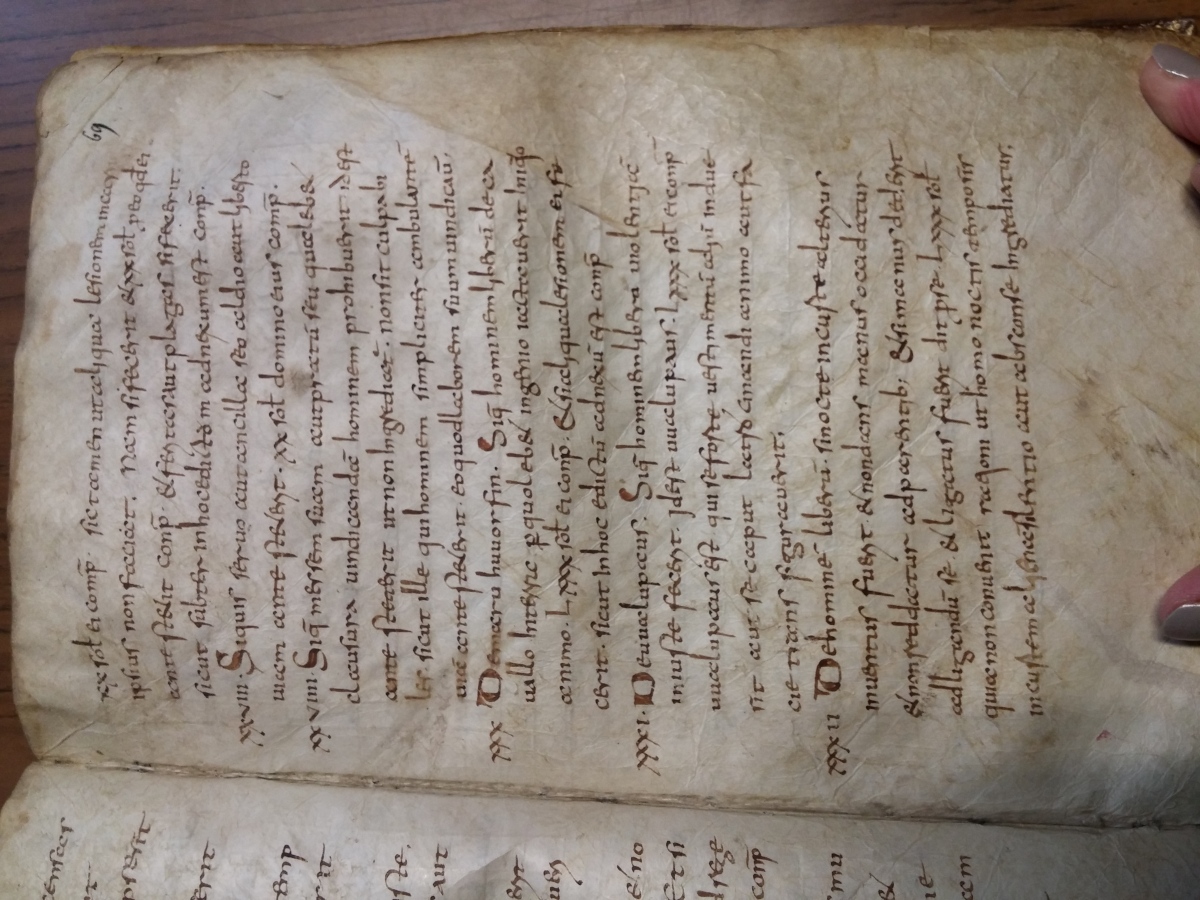 censees
et
pserit
erit
temp
rit
iste.
aut
uen
et no
Et si
d rege
comp̄
mu
et
ie
eam
69
xx sol̄ ei comp̄. sic tamen ut aliqua lesionem in
ipsius non faciat. Nam si fecerit & xx sol̄ p eo qđ ei
ante stetit conp̄. & feritas aut plagas si fecerit.
sicut subter in hoc edicto m adnexum est conp̄.
xxviii. Siquis seruo aut ancillae seo aldio aut liberto
uiam ante steterit. xx sol̄ domino eius comp̄.
xxviiii. Siq̄ messem suam aut pratū seu qualebet
clausura uindicandā hominem prohibuerit id est
ante steterit ut non Ingrediat̄. non sit culpabi
les sicut ille qui hominem simpliciter ambulantē
uiā ante steterit. eo quod laborem suum uindicaū.
xxx Demaru huuorfin. Siq̄ hominem liberū de ca
uallo In terra p̱ quolebet ingenio iactauerit Iniq̄o
animo. Lxxx sol̄ ei conp̄. & si aliqua lesionem ei fe
cerit. sicut In hoc edictū adnexū est conp̄
xxxi. De uualupaus. Siq̄ hominem liberū uiolentiā
iniuste fecerit. Idest uualupaus. Lxxx sol̄ ei conp̄
uualupaus est qui se foste uestimentū aliū indue
rit aut se caput latrocinandi animo aut fa
cie trans figurauerit.
xxxii De hominē liberū. si nocte in curte alterius
inuentus fuerit & non dans manus occidatur
& non reddatur ad parentib; & si manus dederit
ad ligandū se & ligatus fuerit dit p se Lxxx sol̄
quia non conuenit rationi ut homo noctis temporis
in curtem aliena silentio aut absconse Ingrediatur.